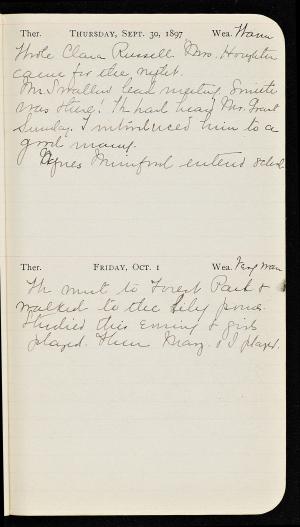 Ther. THURSDAY, SEPT. 30, 1897 Wea. Warm
Wrote Clara Russell. Mrs. Houghton
came for the night.
Mr. Swallow lead meeting. Smith
was there! Th had heard Mr. Grant
Sunday. I introduced him to a
good many.
Agnes entered school
Ther. FRIDAY, OCT. 1 Wea. Very warm
Th went to Forest Park &
walked to the Lily pond.
Studied this evening & girls
played. Then Mary & I played.